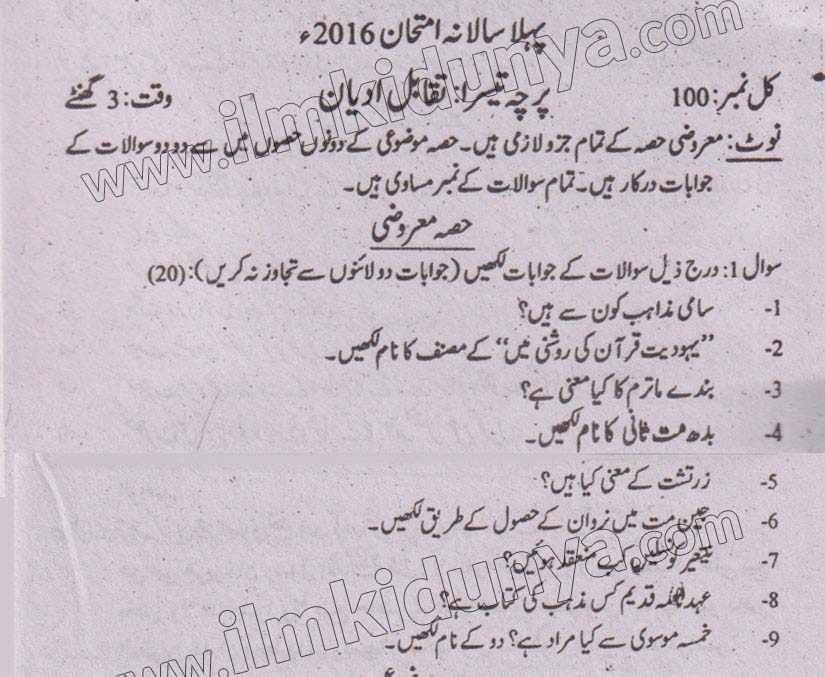 پہلا سالانہ امتحان 2016ء
کل نمبر: 100 پرچہ تیسرا: تقابل ادیان وقت: 3 گھنٹے
نوٹ: معروضی حصہ کے تمام جزو لازمی ہیں۔ حصہ موضوعی کے دونوں حصوں میں سے دو دو سوالات کے
جوابات درکار ہیں۔ تمام سوالات کے نمبر مساوی ہیں۔
حصہ معروضی
سوال 1: درج ذیل سوالات کے جوابات لکھیں (جوابات دو لائنوں سے تجاوز نہ کریں): (20)
1- سامی مذاہب کون سے ہیں؟
2- ”یہودیت قرآن کی روشنی میں“ کے مصنف کا نام لکھیں۔
3- بندے ماترم کا کیا معنی ہے؟
4- بدھ مت ثانی کا نام لکھیں۔
5- زرتشت کے معنی کیا ہیں؟
6- جین مت میں نروان کے حصول کے طریق لکھیں۔
7- کونسلیں کب منعقد ہوئیں؟
8- عہد نامہ قدیم کس مذہب کی کتاب ہے؟
9- خمسہ موسوی سے کیا مراد ہے؟ دو کے نام لکھیں۔
www.ilmkidunya.com
www.ilmkidunya.com